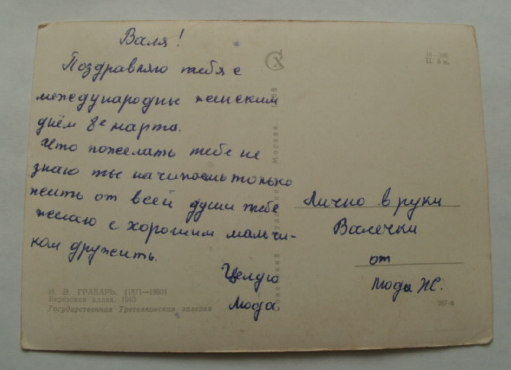 Валя!
Поздравляю тебя с
международны женским
днём 8е марта.
Что пожелать тебе не
знаю ты начинаешь только
жить от всей души тебе
желаю с хорошим мальчи-
ком дружить.
Целую
Мода.
Лично в руки
Валечки
от
Моды Ж.
И. Э. ГРАБАРЬ. (1871—1960)
Березовая аллея. 1940
Государственная Третьяковская галерея
Москва
Ц. 3 к.